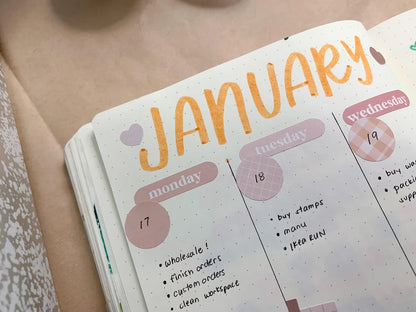 JANUARY
monday
17
• wholesale!
• finish orders
• custom orders
• clean workspace
tuesday
18
• buy stamps
• manu
• IKEA RUN
wednesday
19
• buy